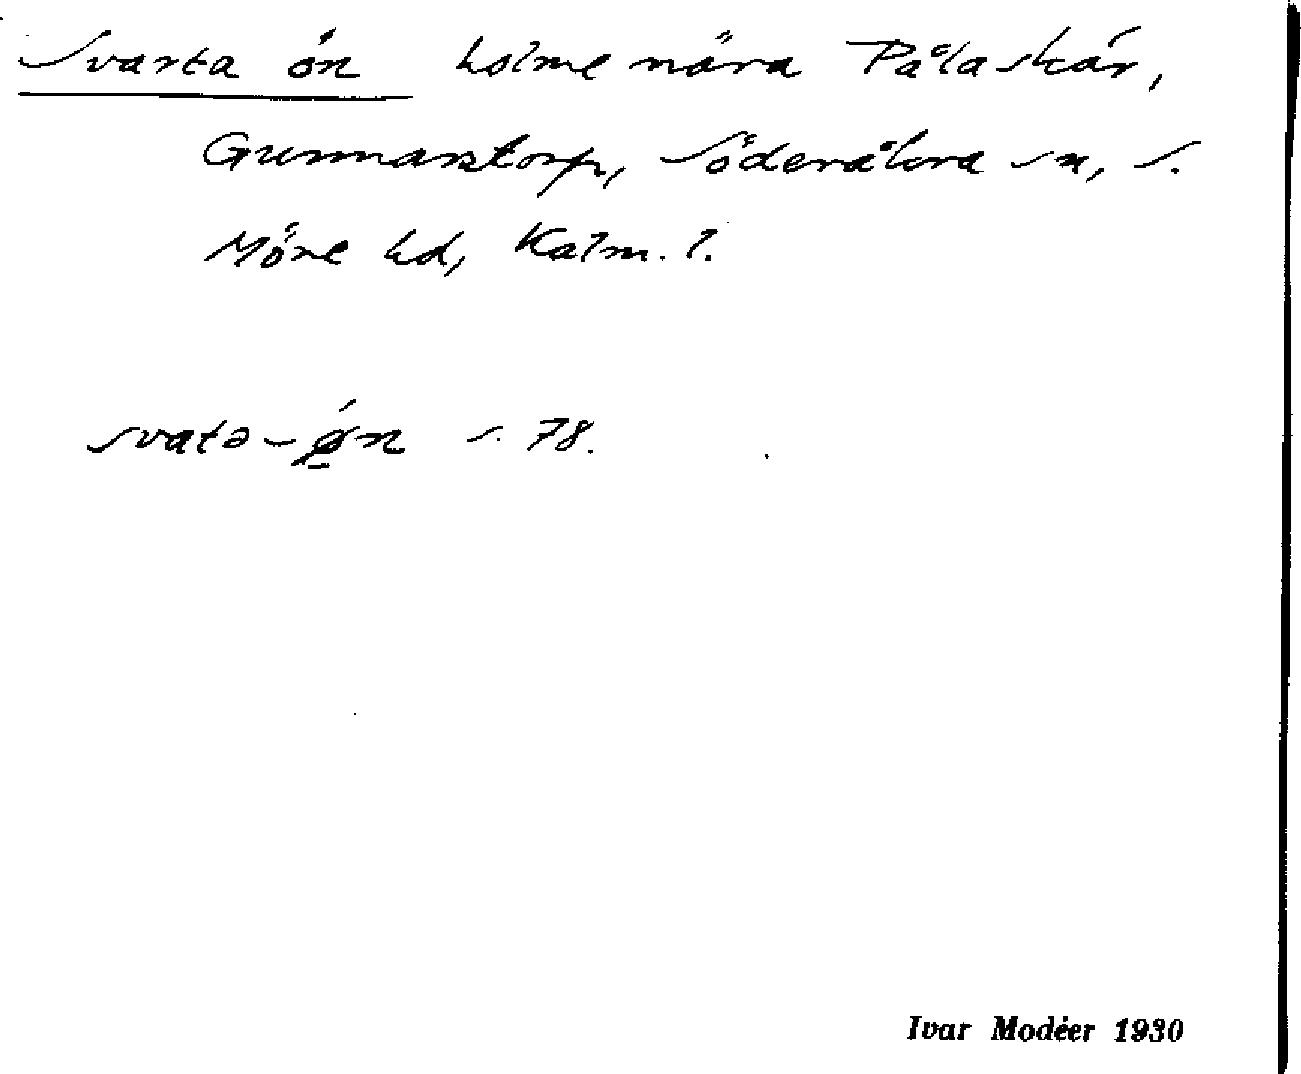 Svarta ön holme nära Pålaskär,
Gunnarstorp, Söderåkra sn, S.
Möre hd, Kalm. l.
svatə-ǿ̱n s. 78.
Ivar Modéer 1930